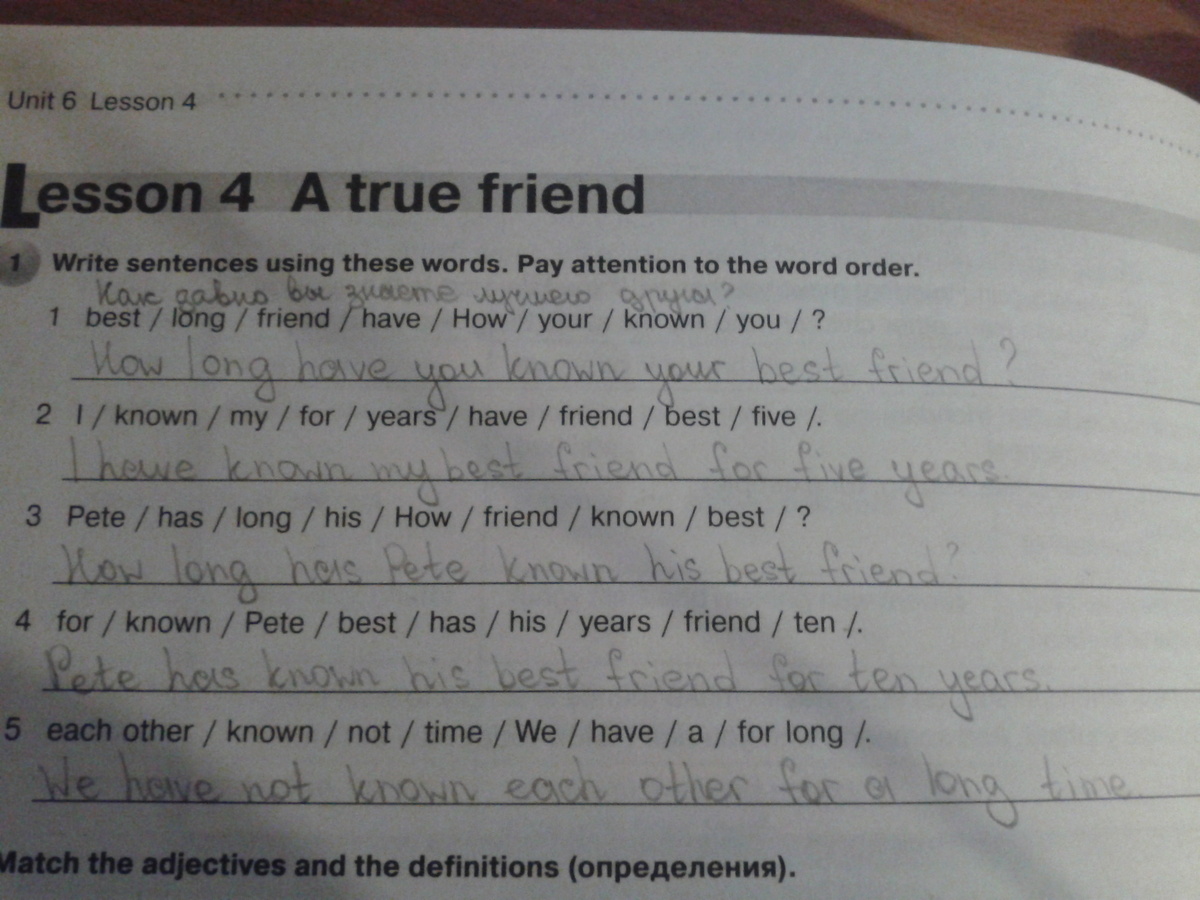 Unit 6 Lesson 4
Lesson 4 A true friend
1 Write sentences using these words. Pay attention to the word order.
Как давно вы знаете лучшего друга?
1 best / long / friend / have / How / your / known / you / ?
How long have you known your best friend?
2 I / known / my / for / years / have / friend / best / five /.
I have known my best friend for five years.
3 Pete / has / long / his / How / friend / known / best / ?
How long has Pete known his best friend?
4 for / known / Pete / best / has / his / years / friend / ten /.
Pete has known his best friend for ten years.
5 each other / known / not / time / We / have / a / for long /.
We have not known each other for a long time.
Match the adjectives and the definitions (определения).